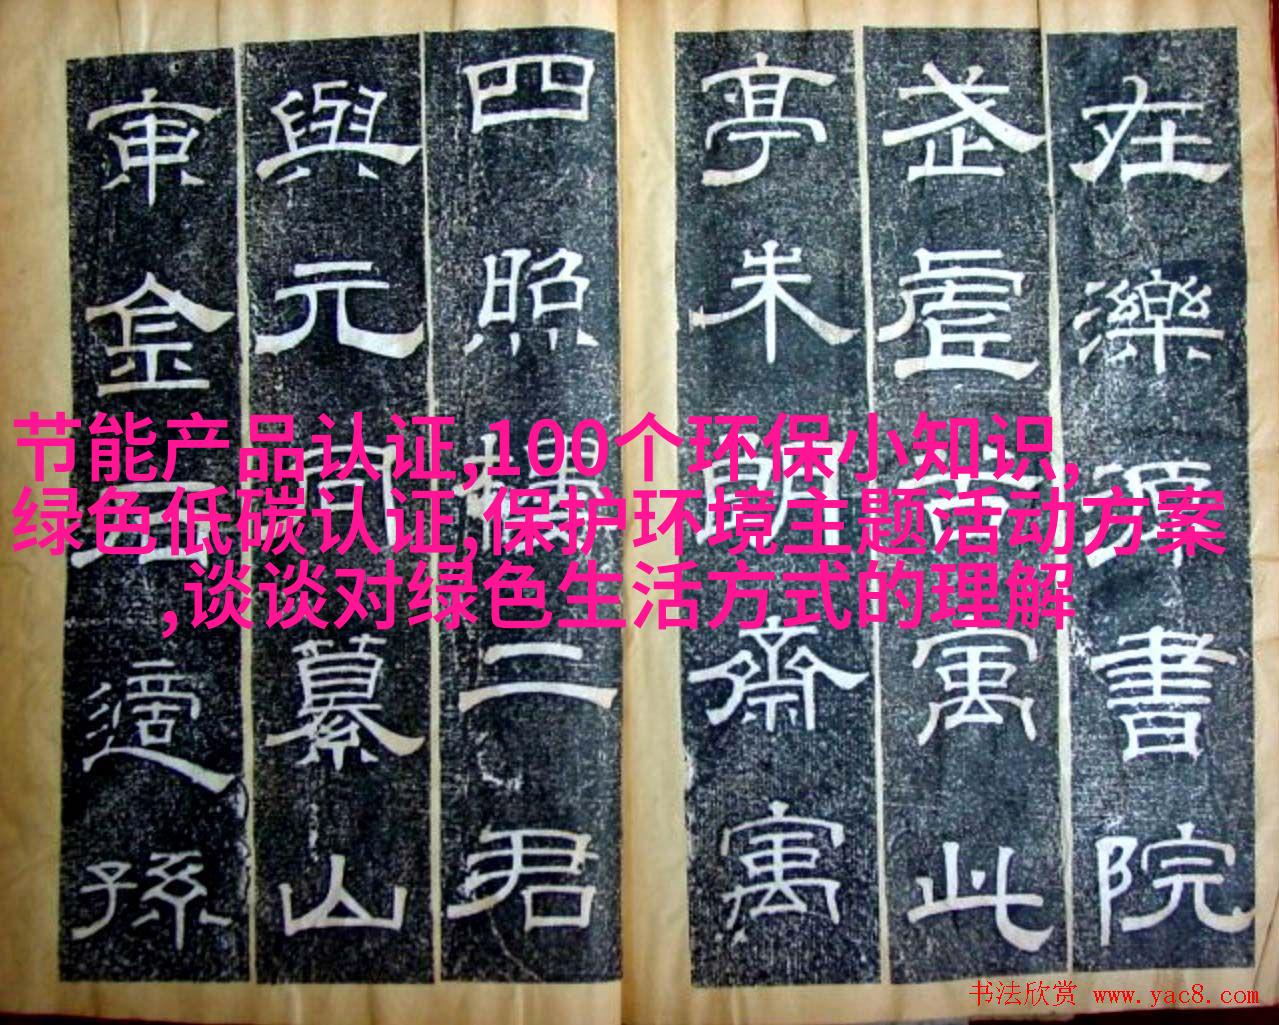 节能产品认证,100个环保小知识,
绿色低碳认证,保护环境主题活动方案
,谈谈对绿色生活方式的理解
在濼源書院
武虛谷寓此
亭朱朗齋寓
四照樓二君
與元同纂山
東金石適孫
书法欣赏 www.yac8.com